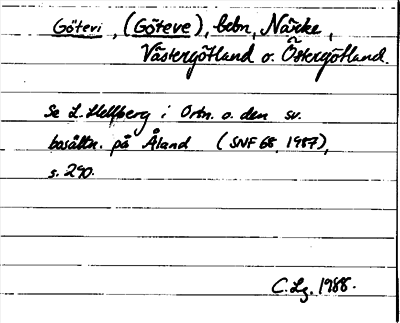 Götevi, (Göteve), bebn, Närke,
Västergötland o. Östergötland.
Se L. Hellberg i Ortn. o. den sv.
bosättn. på Åland (SNF 68, 1987),
s. 290.
C. Lg. 1988.